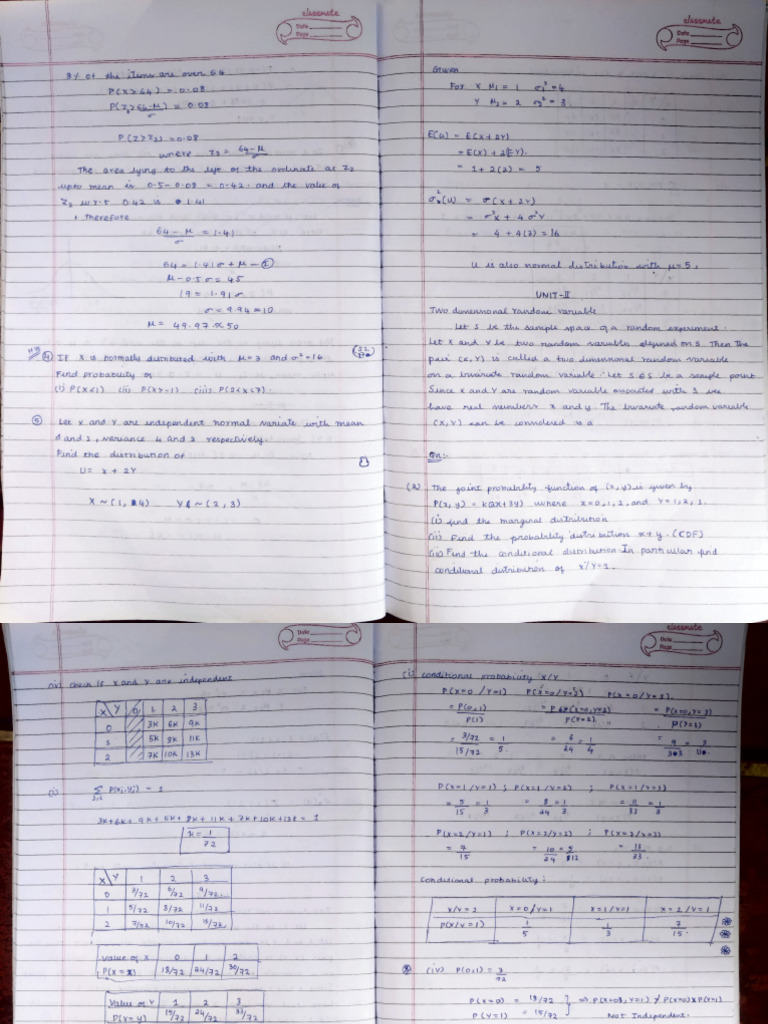 classmate
Date
Page
8% of the items are over 64
P(X>64) = 0.08
P(Z>64-μ/σ) = 0.08
P(Z>Z2) = 0.08
where Z2 = 64-μ/σ
The area lying to the left of the ordinate at Z2
upto mean is 0.5-0.08 = 0.42 and the value of
Z2 w.r.t 0.42 is 1.41
Therefore
64-μ/σ = 1.41
64 = 1.41σ + μ - ②
μ-0.5σ = 45
19 = 1.91σ
σ = 9.94 ≈ 10
μ = 49.97 ≈ 50
④ If X is normally distributed with μ=3 and σ²=16
Find probability of
(i) P(X<1) (ii) P(X>-1) (iii) P(2<X<7).
⑤ Let X and Y are independent normal variate with mean
1 and 2, variance 4 and 3 respectively.
Find the distribution of
U = X + 2Y
X ~ (1, 4) Y ~ (2, 3)
classmate
Date
Page
Given
For X μ1 = 1 σ1² = 4
Y μ2 = 2 σ2² = 3.
E(U) = E(X+2Y)
= E(X) + 2E(Y).
= 1+2(2) = 5
σ²(U) = σ(X+2Y)
= σ²X + 4σ²Y
= 4 + 4(3) = 16
U is also normal distribution with μ=5,
UNIT-II
Two dimensional random variable
Let S be the sample space of a random experiment.
Let X and Y be two random variables defined on S. Then the
pair (X,Y) is called a two dimensional random variable
on a bivariate random variable. Let S∈S be a sample point
Since X and Y are random variable associated with S we
have real numbers x and y. The bivariate random variable
(X,Y) can be considered is a
Qn:-
The joint probability function of (x,y) is given by
P(x,y) = K(2X+3Y) where x=0,1,2, and Y=1,2,3.
(i) Find the marginal distribution
(ii) Find the probability distribution x+y. (CDF)
(iii) Find the conditional distribution In particular find
conditional distribution of X/Y=1.
Date
Page
(iv) Check if X and Y are independent
X\Y 0 1 2 3
0 3K 6K 9K
1 5K 8K 11K
2 7K 10K 13K
(i) Σ P(xi,yj) = 1
3K+6K+9K+5K+8K+11K+7K+10K+13K = 1
K = 1/72
X\Y 1 2 3
0 3/72 6/72 9/72
1 5/72 8/72 11/72
2 7/72 10/72 13/72
Value of X 0 1 2
P(X=x) 18/72 24/72 30/72
Value of Y 1 2 3
P(Y=y) 15/72 24/72 33/72
classmate
Date
Page
conditional probability X/Y
P(X=0/Y=1) P(X=0/Y=2) P(X=0/Y=3).
= P(0,1)/P(1) = P(X=0,Y=2)/P(Y=2) = P(X=0,Y=3)/P(Y=3)
= 3/72/15/72 = 1/5 = 6/24 = 1/4 = 9/33 = 3/11
P(X=1/Y=1) ; P(X=1/Y=2) ; P(X=1/Y=3)
= 5/15 = 1/3 = 8/24 = 1/3 = 11/33 = 1/3
P(X=2/Y=1) ; P(X=2/Y=2) ; P(X=2/Y=3)
= 7/15 = 10/24 = 5/12 = 13/33
Conditional probability:
X/Y=1 X=0/Y=1 X=1/Y=1 X=2/Y=1
P(X/Y=1) 1/5 1/3 7/15
(iv) P(0,1) = 3/72
P(X=0) = 18/72
P(Y=1) = 15/72 } ⇒ P(X=0, Y=1) ≠ P(X=0) x P(Y=1)
Not Independent.